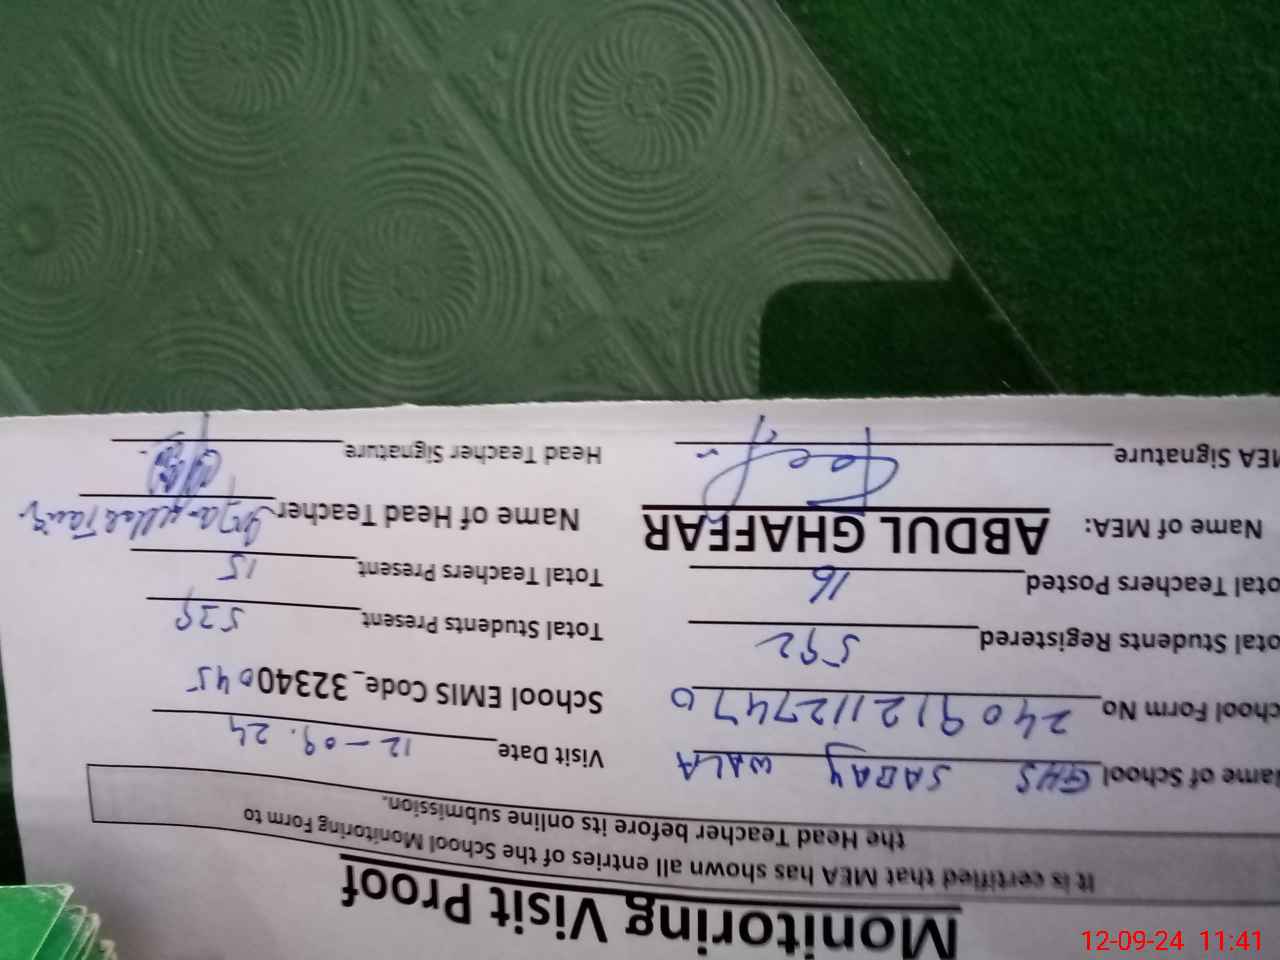 Monitoring Visit Proof
It is certified that MEA has shown all entries of the School Monitoring Form to
the Head Teacher before its online submission.
ame of School GHS SABAY WALA Visit Date 12-09.24
chool Form No 24091211274 70 School EMIS Code_32340045
otal Students Registered 592 Total Students Present 539
otal Teachers Posted 16 Total Teachers Present 15
Name of MEA: ABDUL GHAFFAR Name of Head Teacher
MEA Signature Head Teacher Signature
12-09-24 11:41